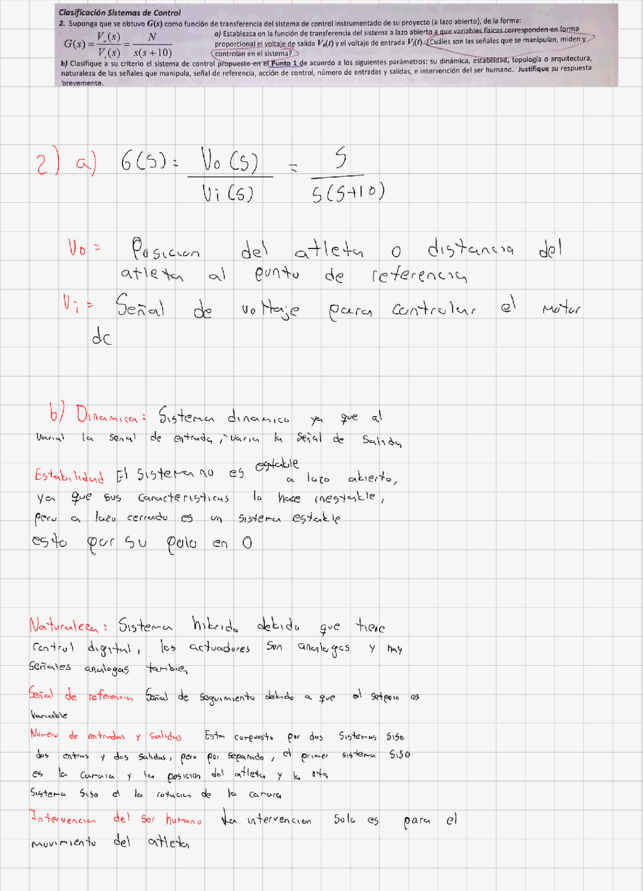 Clasificación Sistemas de Control
2. Suponga que se obtuvo G(s) como función de transferencia del sistema de control instrumentado de su proyecto (a lazo abierto), de la forma:
G(s) = Vo(s) / Vi(s) = N / s(s+10)
a) Establezca en la función de transferencia del sistema a lazo abierto a que variables físicas corresponden en forma
proporcional el voltaje de salida Vo(t) y el voltaje de entrada Vi(t). ¿Cuáles son las señales que se manipulan, miden y
controlan en el sistema?
b) Clasifique a su criterio el sistema de control propuesto en el Punto 1 de acuerdo a los siguientes parámetros: su dinámica, estabilidad, topología o arquitectura,
naturaleza de las señales que manipula, señal de referencia, acción de control, número de entradas y salidas, e intervención del ser humano. Justifique su respuesta
brevemente.
2) a) G(s) = Vo(s) / Vi(s) = 5 / s(s+10)
Vo = Posicion del atleta o distancia del
atleta al punto de referencia
Vi = Señal de voltaje para controlar el motor
dc
b) Dinamica: Sistema dinamico ya que al
variar la senal de entrada, varia la señal de salida
Estabilidad El sistema no es estable a lazo abierto,
ya que sus caracteristicas lo hace inestable,
pero a lazo cerrado es un sistema estable
esto por su polo en 0
Naturaleza: Sistema hibrido debido que tiene
control digital, los actuadores son analogos y hay
señales analogas tambien
Señal de referencia Señal de seguimiento debido a que el setpoin es
variable
Numero de entradas y salidas Esta compuesto por dos sistemas SISO
dos entras y dos salidas, pero por separado, el primer sistema SISO
es la camara y la posicion del atleta y la otra
Sistema Siso el la rotacion de la camara
Intervencion del ser humano La intervencion solo es para el
movimiento del atleta